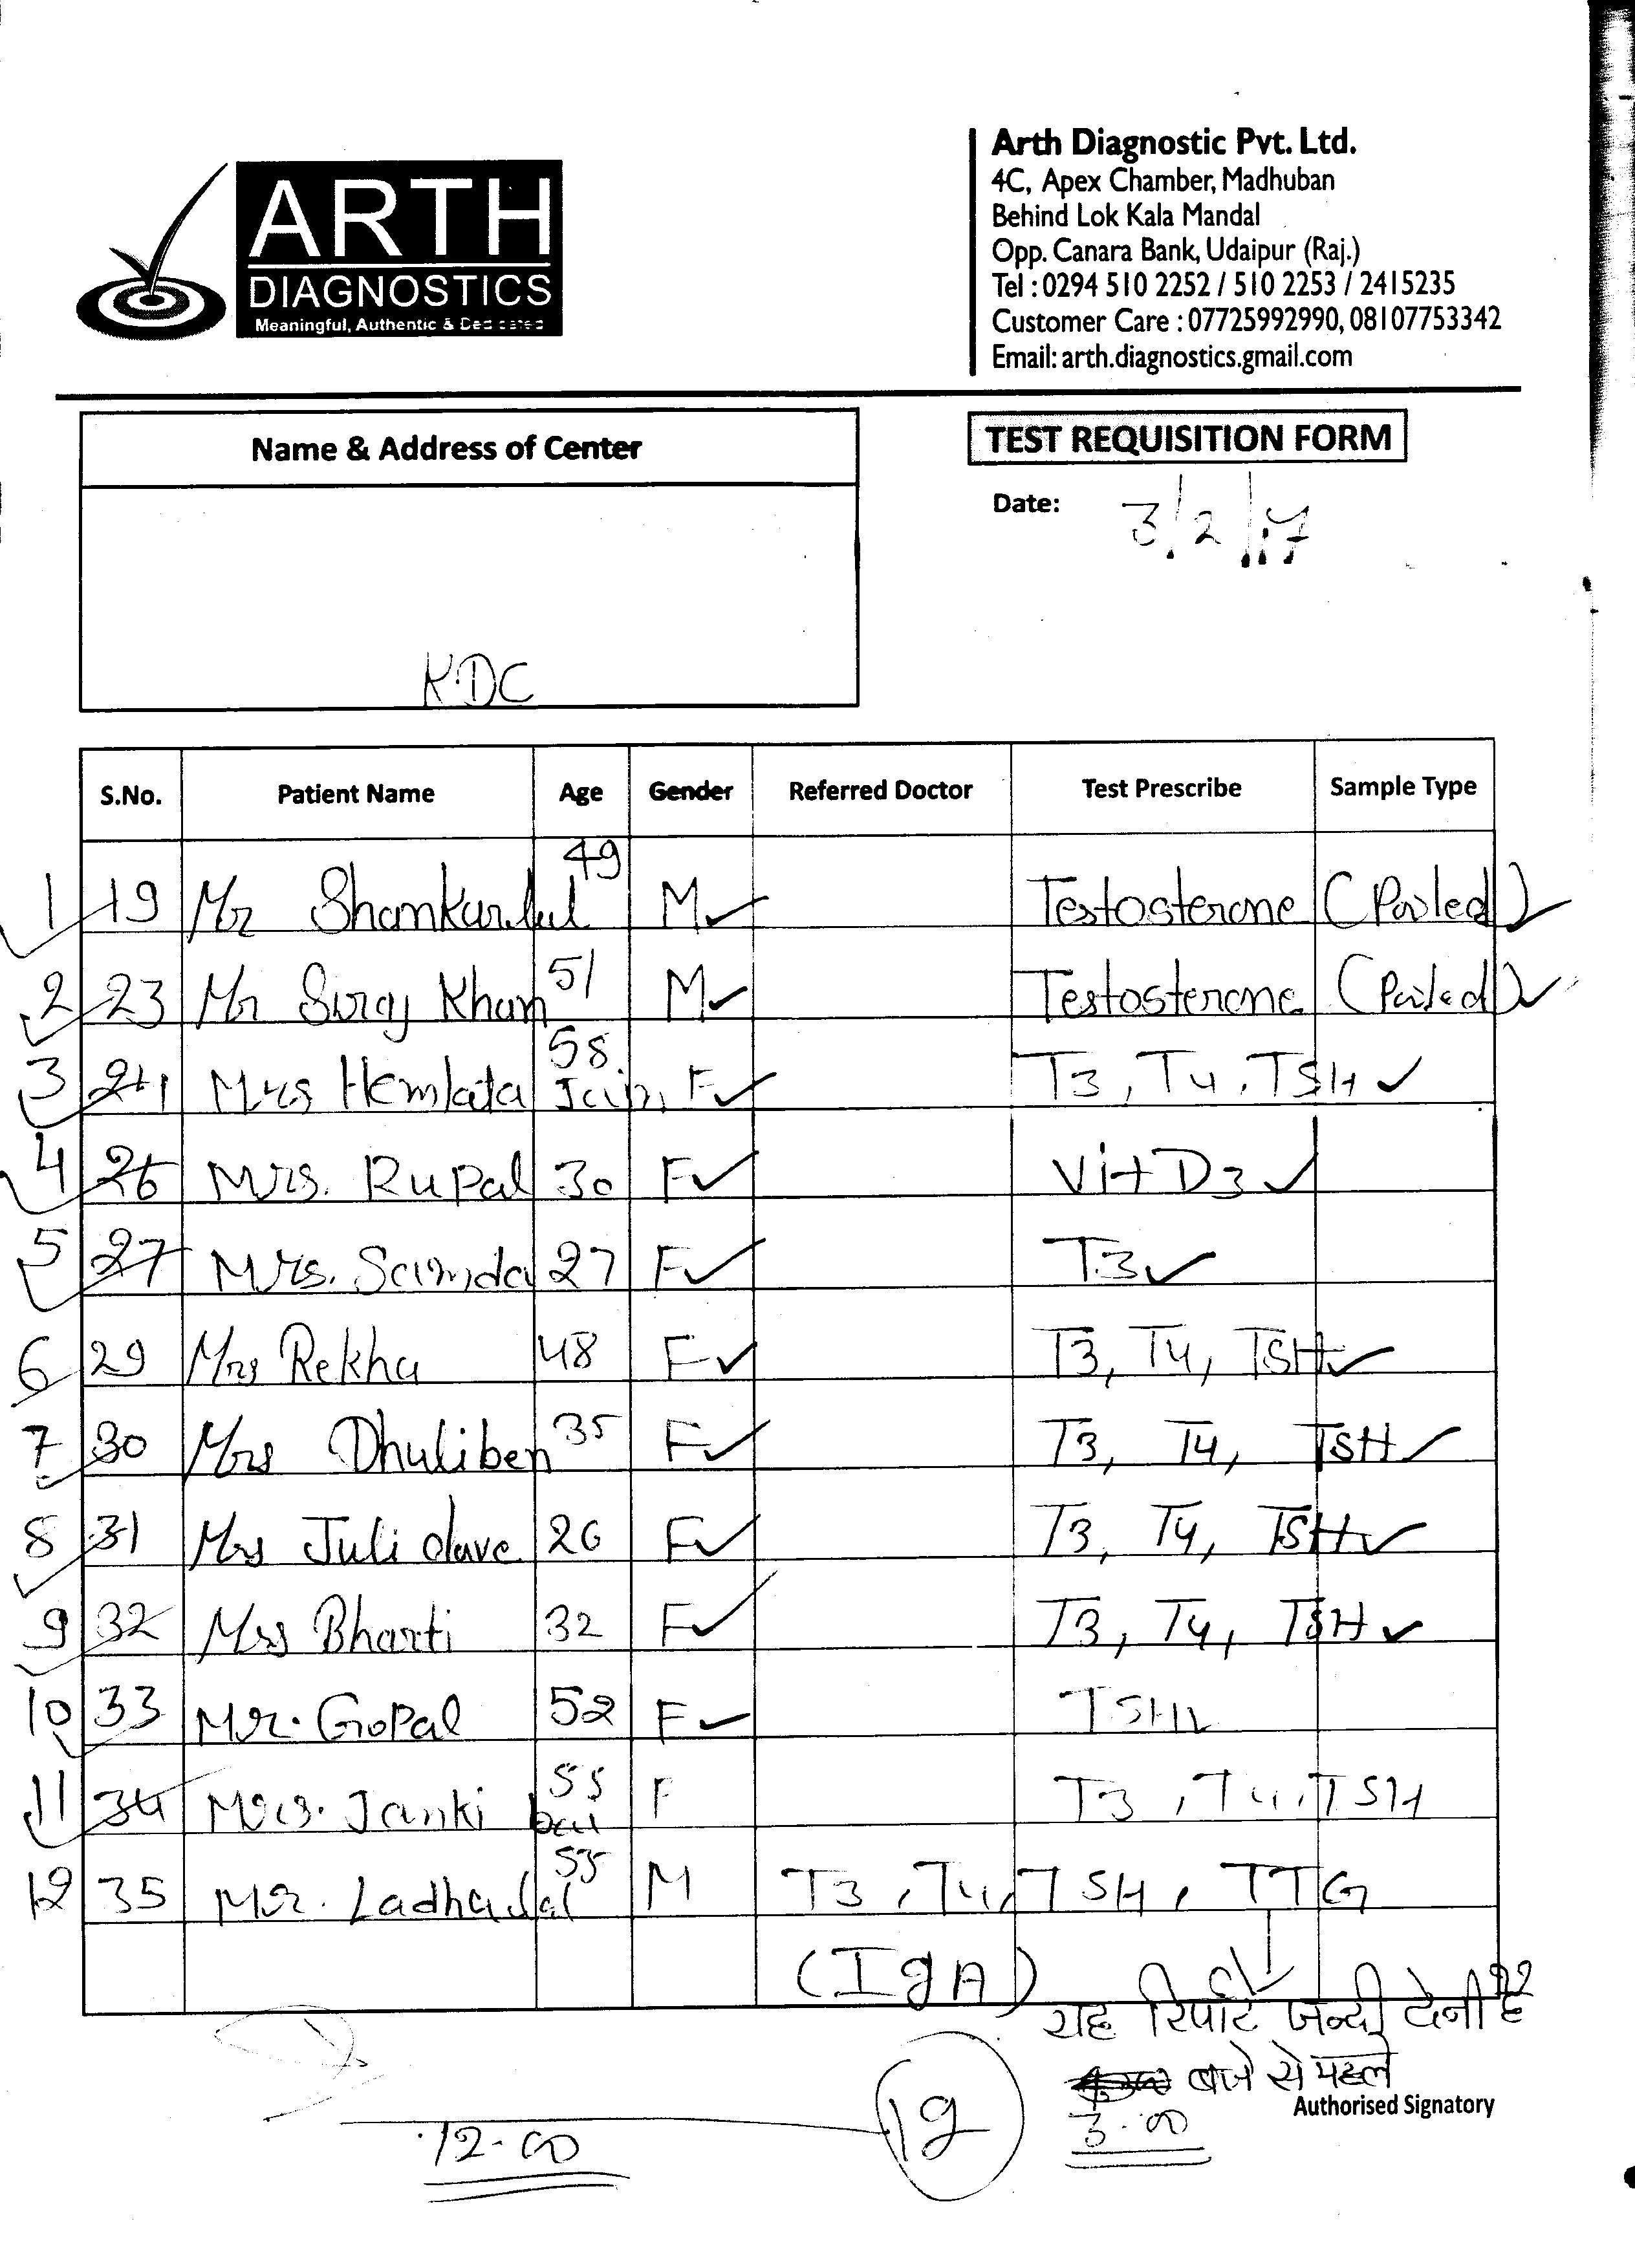 ARTH
DIAGNOSTICS
Meaningful, Authentic & Dedicated
Arth Diagnostic Pvt. Ltd.
4C, Apex Chamber, Madhuban
Behind Lok Kala Mandal
Opp. Canara Bank, Udaipur (Raj.)
Tel : 0294 510 2252 / 510 2253 / 2415235
Customer Care : 07725992990, 08107753342
Email: arth.diagnostics.gmail.com
Name & Address of Center
KDC
TEST REQUISITION FORM
Date: 3/2/17
S.No. Patient Name Age Gender Referred Doctor Test Prescribe Sample Type
1 19 Mr Shankarlal 49 M Testosterone (Pooled)
2 23 Mr Siraj Khan 51 M Testosterone (Pooled)
3 24 Mrs Hemlata Jain 58 F T3, T4, TSH
4 26 Mrs. Rupal 30 F Vit D3
5 27 Mrs. 27 F T3
6 29 Mrs Rekha 48 F T3, T4, TSH
7 30 Mrs Dhuliben 35 F T3, T4, TSH
8 31 Mrs Juli dave 26 F T3, T4, TSH
9 32 Mrs Bharti 32 F T3, T4, TSH
10 33 Mr. Gopal 52 F TSH
11 34 Mrs. Janki bai 55 F T3, T4, TSH
12 35 Mr. Ladhulal 55 M T3, T4, TSH, TTG
(IgA)
यह रिपोर्ट जल्दी देनी है
बजे से पहले
3-00
Authorised Signatory
12-00
12